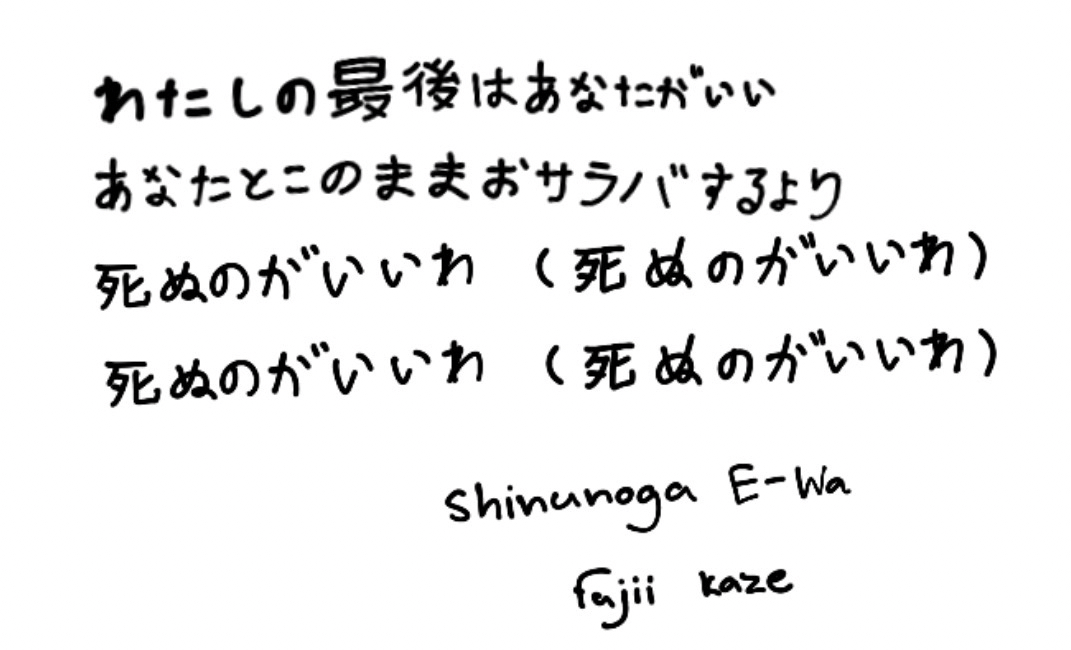 わたしの最後はあなたがいい
あなたとこのままおサラバするより
死ぬのがいいわ (死ぬのがいいわ)
死ぬのがいいわ (死ぬのがいいわ)
Shinunoga E-Wa
Fujii Kaze